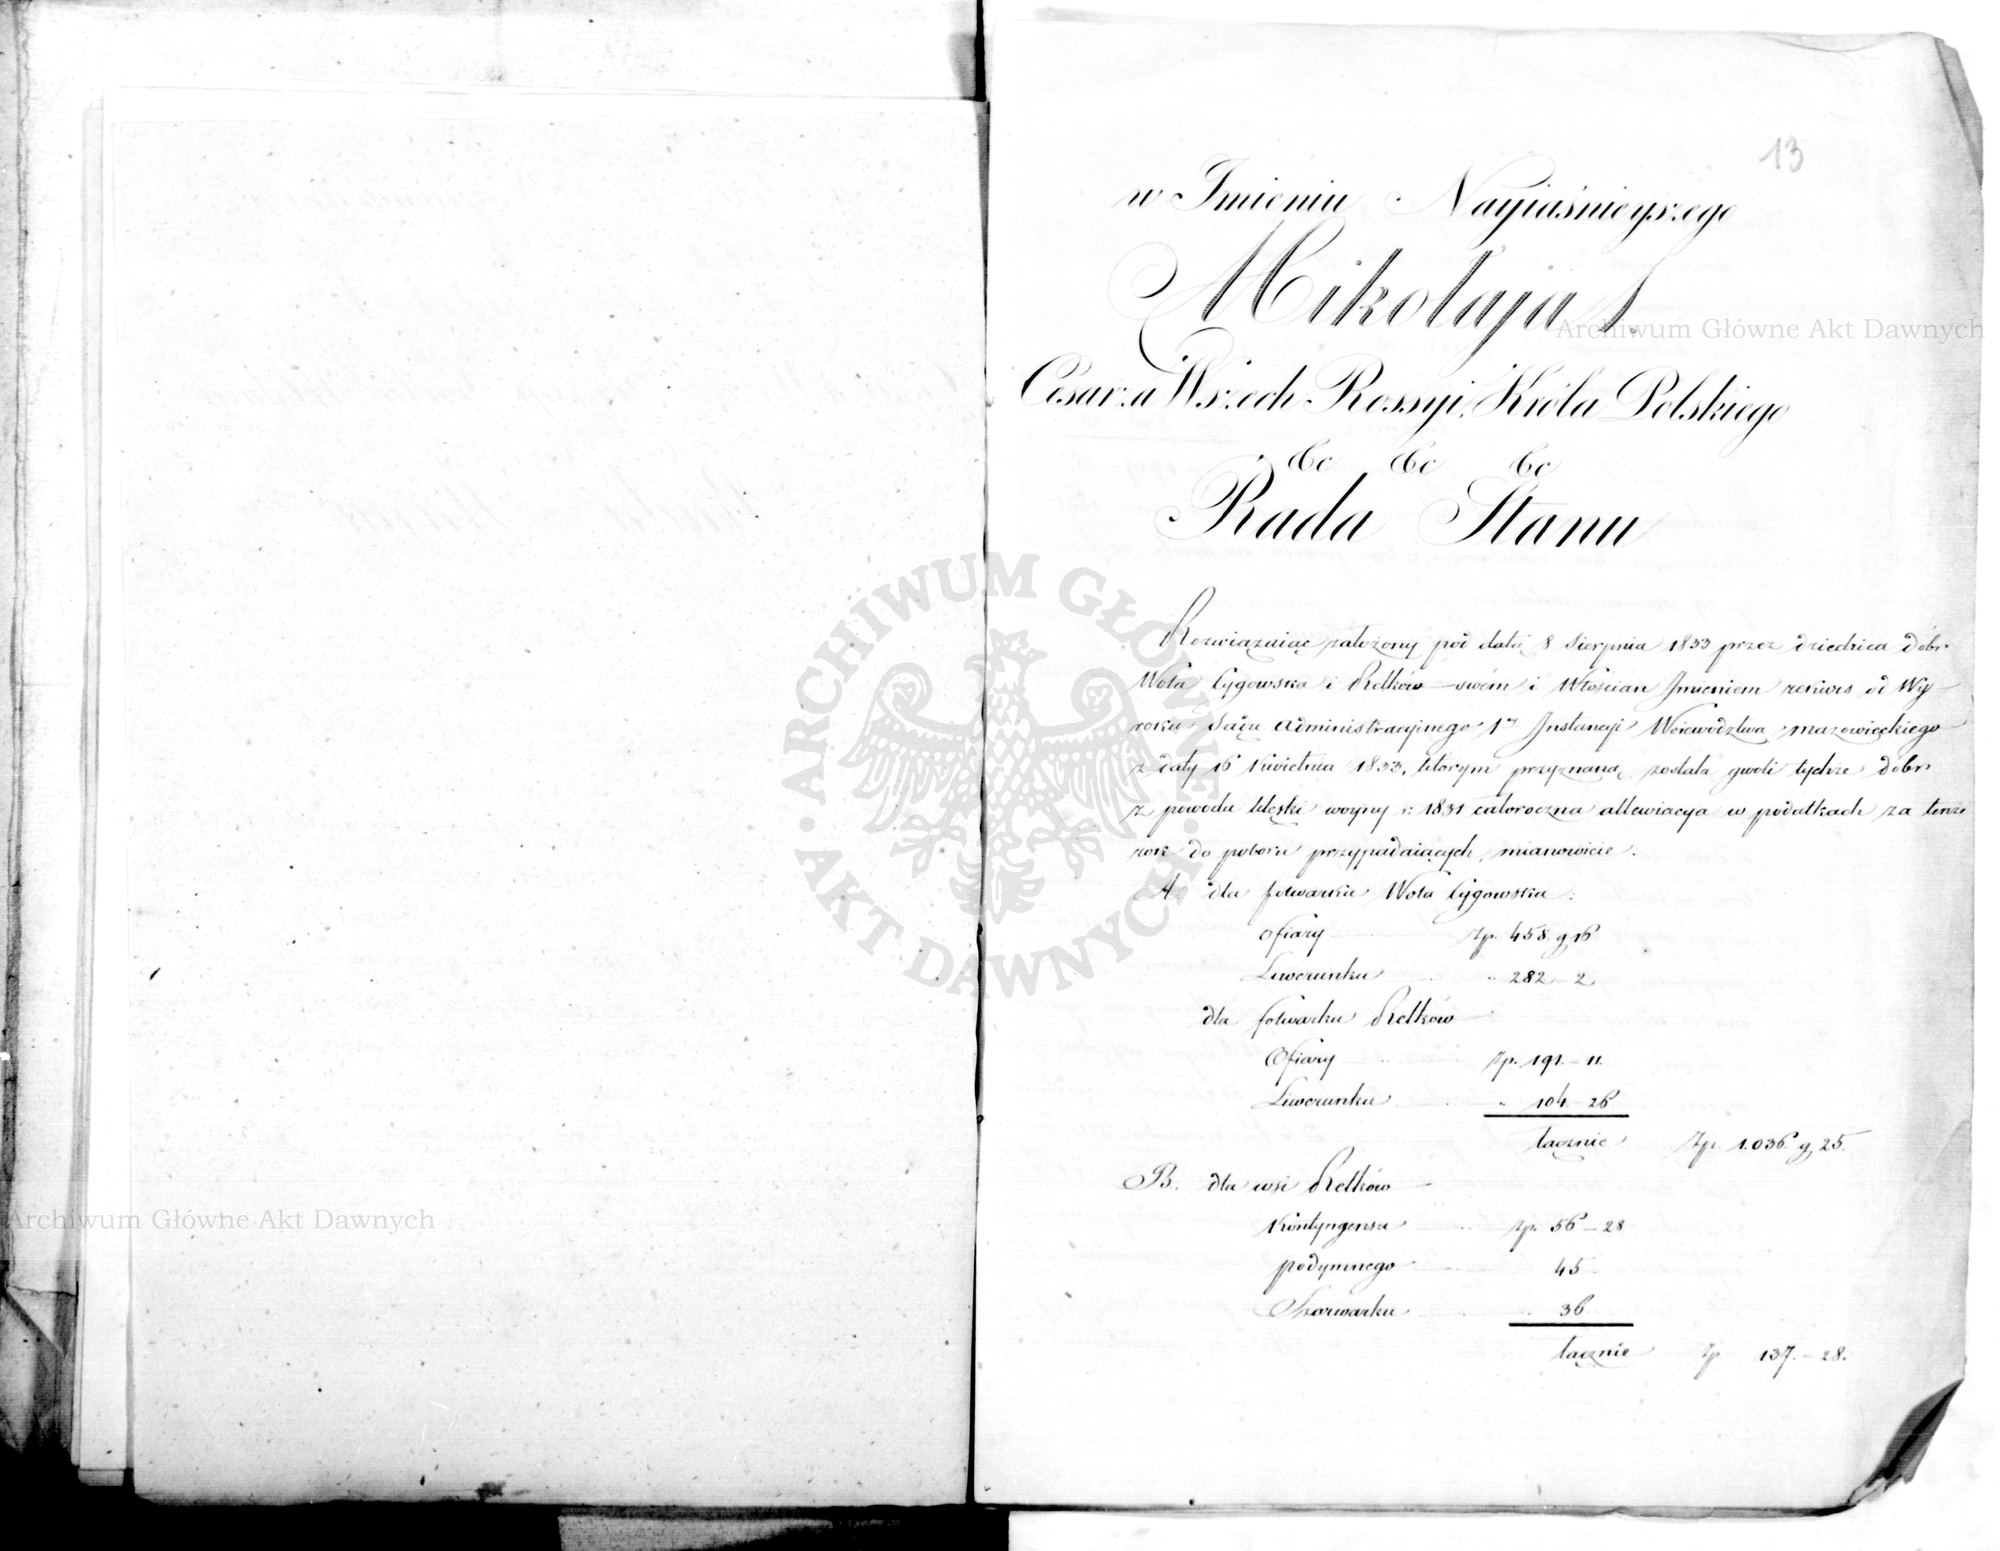 13
w Imieniu Nayjaśnieyszego
Mikołaja I.
Cesarza Wszech Rossyi, Króla Polskiego
&c &c &c
Rada Stanu
Rozwiązuiąc założony pod datą 8 Sierpnia 1833 przez dziedzica dóbr
Wola Cygowska i Retków swém i Włościan Imieniem rekurs od Wy-
roku Sądu Administracyinego 1éy Instancyi Woiewództwa mazowieckiego
z daty 16 Kwietnia 1833, którym przyznaną została gwoli tychże dóbr
z powodu klęski woyny r: 1831 całoroczna allewiacya w podatkach za tenże
rok do poboru przypadaiących, mianowicie:
A. dla folwarku Wola Cygowska:
ofiary Zp. 458. g 16
Liwerunku " 282 - 2
dla folwarku Retków
Ofiary Zp. 191. - 11.
Liwerunku " 104 - 26
łącznie Zp. 1.036. g 25.
B. dla wsi Retków
Kontyngensu Zp. 56 - 28
podymnego 45 -
Szarwarku " 36
łącznie Zp 137. - 28.
ARCHIWUM GŁÓWNE · AKT DAWNYCH ·
Archiwum Główne Akt Dawnych
Archiwum Główne Akt Dawnych